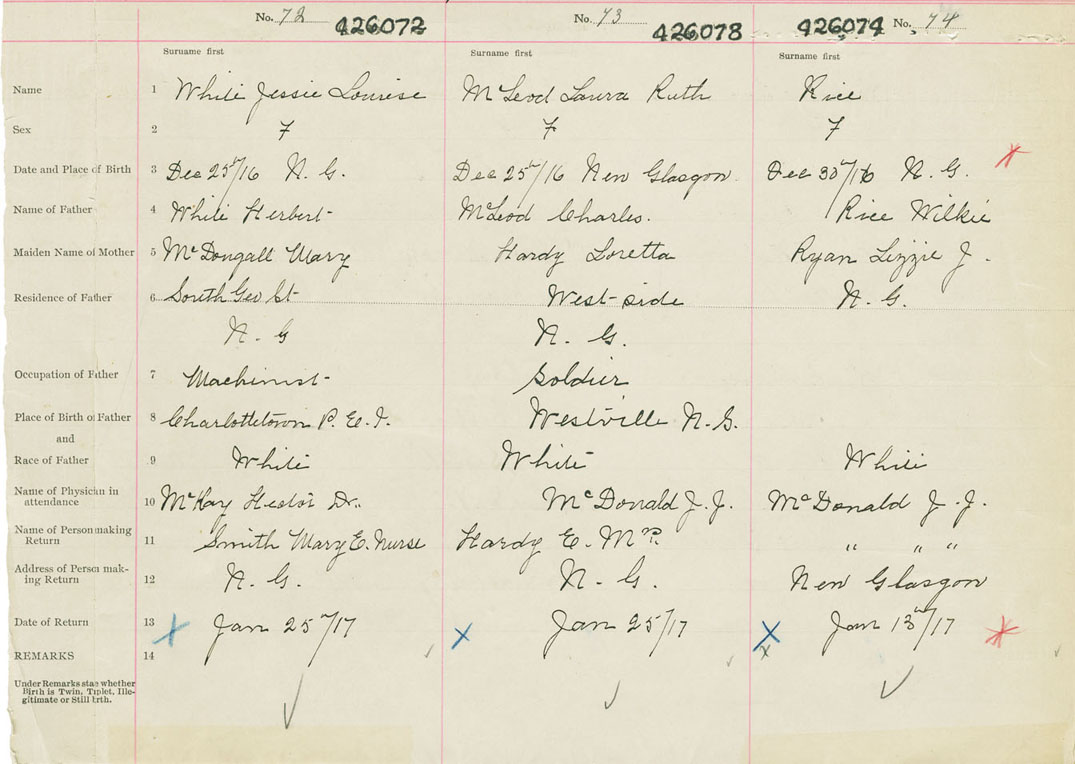 No. 72 426072 No. 73 426078 426074 No. 74
Surname first Surname first Surname first
Name 1 White Jessie Louise McLeod Laura Ruth Rice
Sex 2 F F F
Date and Place of Birth 3 Dec 25th/16 N. G. Dec 25th/16 New Glasgow. Dec 30th/16 N. G.
Name of Father 4 White Herbert McLeod Charles. Rice Wilkie
Maiden Name of Mother 5 McDougall Mary Hardy Loretta Ryan Lizzie J.
Residence of Father 6 South Geo St West-side N. G.
N. G N. G.
Occupation of Father 7 Machinist Soldier
Place of Birth of Father 8 Charlottetown P. E. I. Westville N. S.
and
Race of Father 9 White White White
Name of Physician in
attendance 10 McKay Hector Dr. McDonald J. J. McDonald J. J.
Name of Person making
Return 11 Smith Mary E. Nurse Hardy E. Mrs. " " "
Address of Person mak-
ing Return 12 N. G. N. G. New Glasgow
Date of Return 13 Jan 25th/17 Jan 25/17 Jan 13th/17
REMARKS 14
Under Remarks state whether
Birth is Twin, Triplet, Ille-
gitimate or Still Birth.